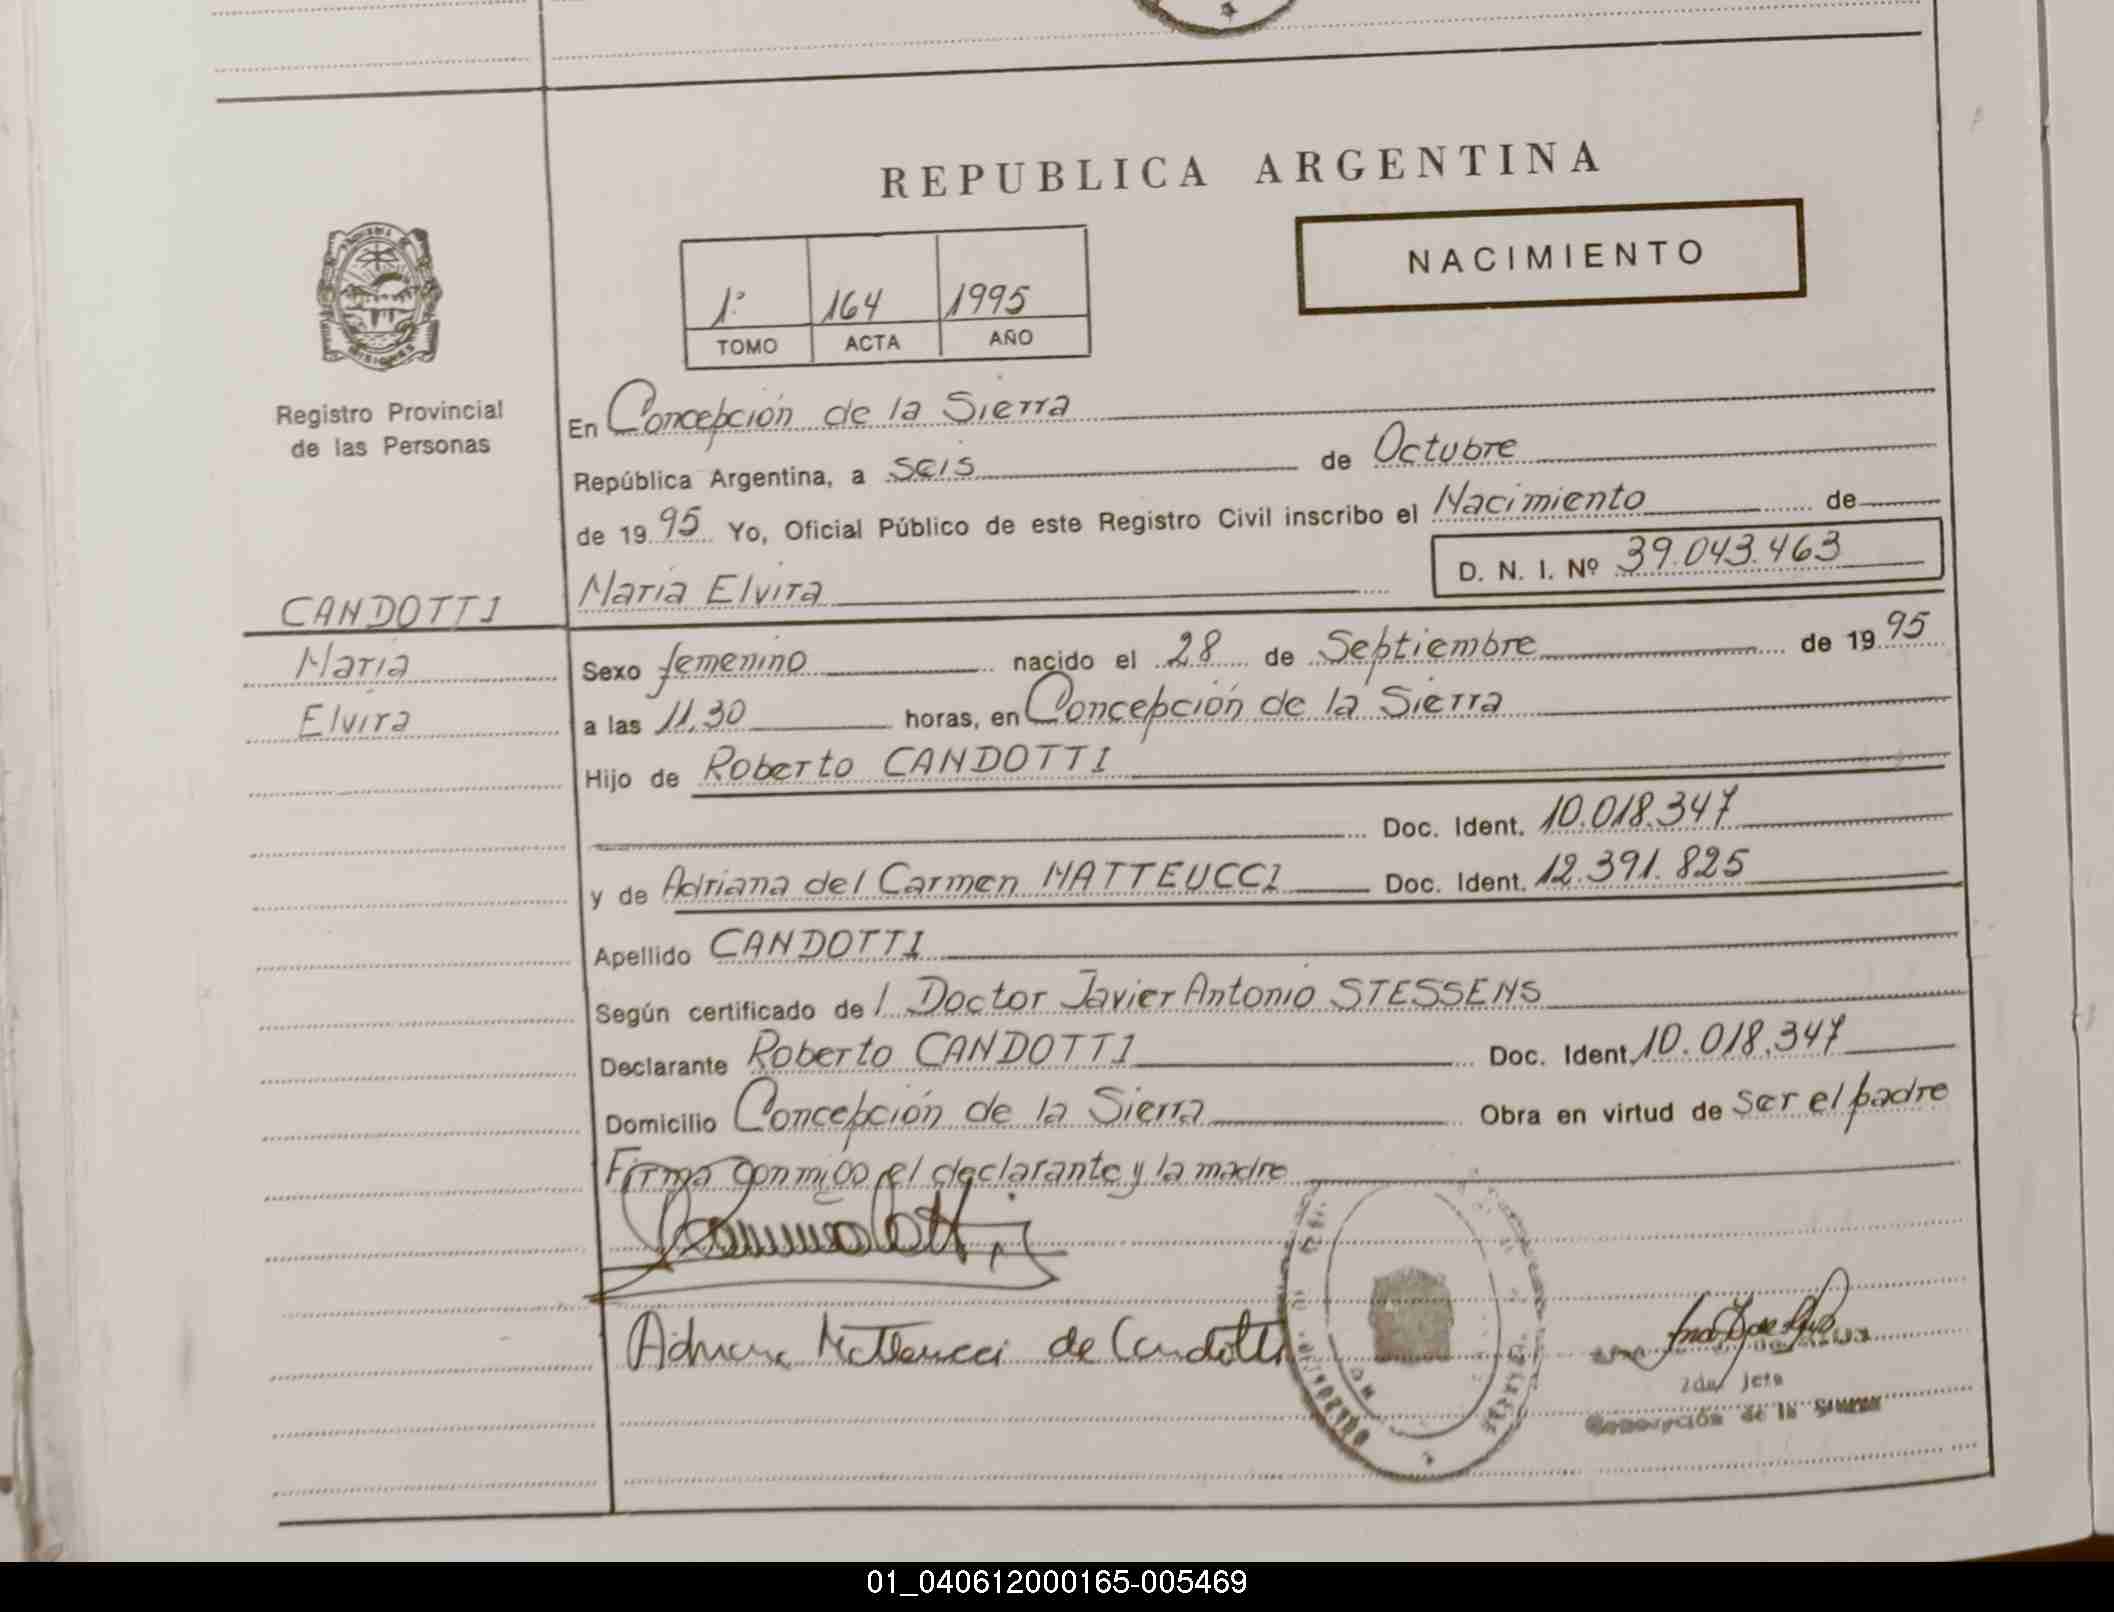 REPUBLICA ARGENTINA
NACIMIENTO
1º 164 1995
TOMO ACTA AÑO
MISIONES
Registro Provincial
de las Personas
En Concepción de la Sierra
República Argentina, a seis de Octubre
de 1995 Yo, Oficial Público de este Registro Civil inscribo el Nacimiento de
D. N. I. Nº 39.043.463
CANDOTTI María Elvira
María
Elvira
Sexo femenino nacido el 28 de Septiembre de 1995
a las 11,30 horas, en Concepción de la Sierra
Hijo de Roberto CANDOTTI
Doc. Ident. 10.018.347
y de Adriana del Carmen MATTEUCCI Doc. Ident. 12.391.825
Apellido CANDOTTI
Según certificado del Doctor Javier Antonio STESSENS
Declarante Roberto CANDOTTI Doc. Ident. 10.018.347
Domicilio Concepción de la Sierra Obra en virtud de ser el padre
Firma conmigo el declarante y la madre
Adriana Matteucci de Candotti
2da Jefa
Concepción de la Sierra
01_040612000165-005469